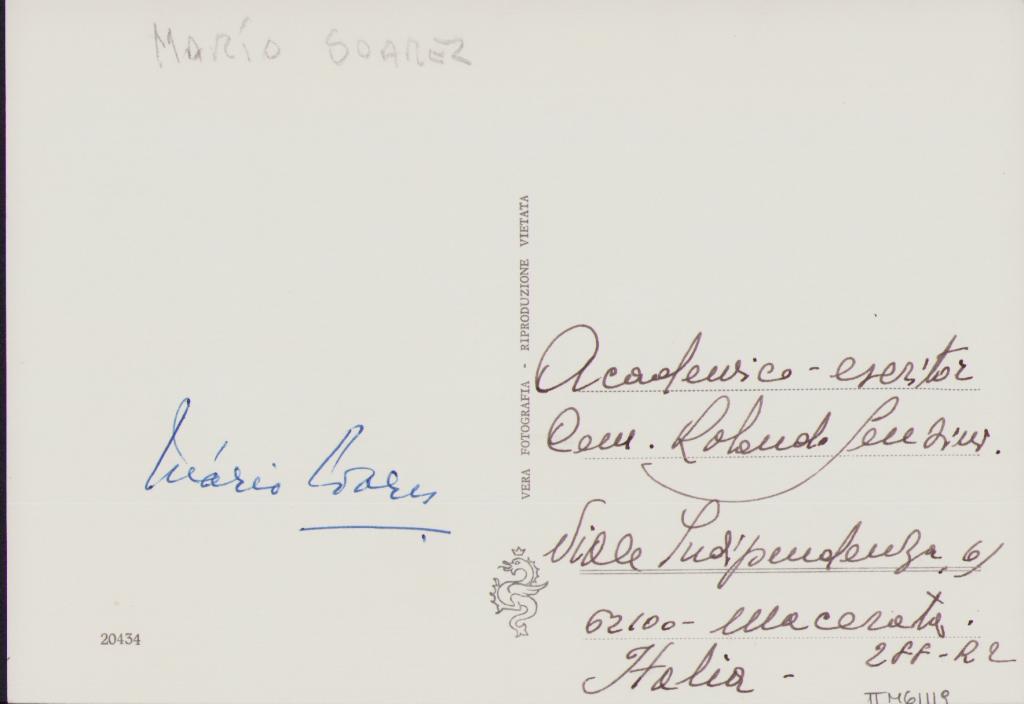 MARÍO SOAREZ
VERA FOTOGRAFIA - RIPRODUZIONE VIETATA
Academico - escritor
Com. Rolando Senzini.
Mário Soares
Viale Indipendenza, 6/
62100 - Macerata.
Italia -
20434
288-R2
ΠM61119